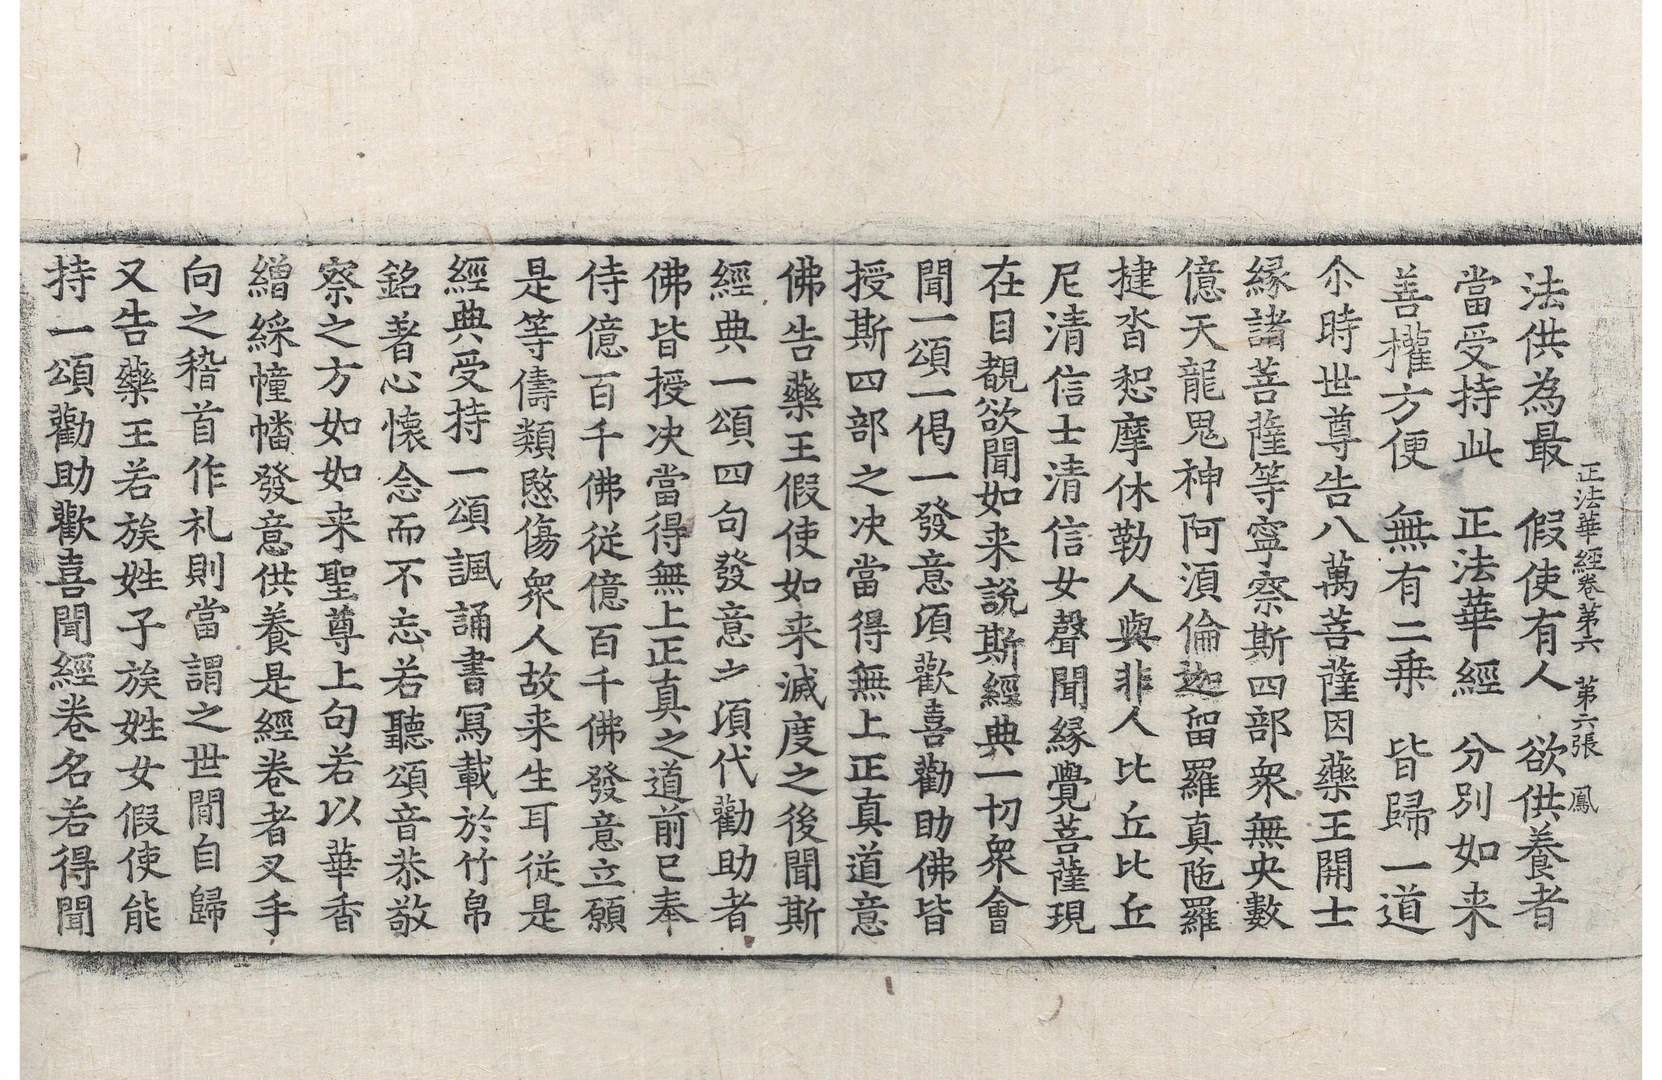 正法華經卷第六　第六張　鳳
法供為最　假使有人　欲供養者
當受持此　正法華經　分別如来
善權方便　無有二乗　皆歸一道
尒時世尊告八萬菩薩因藥王開士
縁諸菩薩等寧察斯四部衆無央數
億天龍鬼神阿湏倫迦留羅真陁羅
揵沓恕摩休勒人與非人比丘比丘
尼清信士清信女聲聞縁覺菩薩現
在目覩欲聞如来說斯經典一切衆會
聞一頌一偈一發意湏歡喜勸助佛皆
授斯四部之决當得無上正真道意
佛告藥王假使如来滅度之後聞斯
經典一頌四句發意之湏代勸助者
佛皆授决當得無上正真之道前已奉
侍億百千佛從億百千佛發意立願
是等儔類愍傷衆人故来生耳從是
經典受持一頌諷誦書寫載於竹帛
銘著心懷念而不忘若聽頌音恭敬
察之方如如来聖尊上句若以華香
繒綵幢幡發意供養是經卷者叉手
向之稽首作礼則當謂之世間自歸
又告藥王若族姓子族姓女假使能
持一頌勸助歡喜聞經卷名若得聞